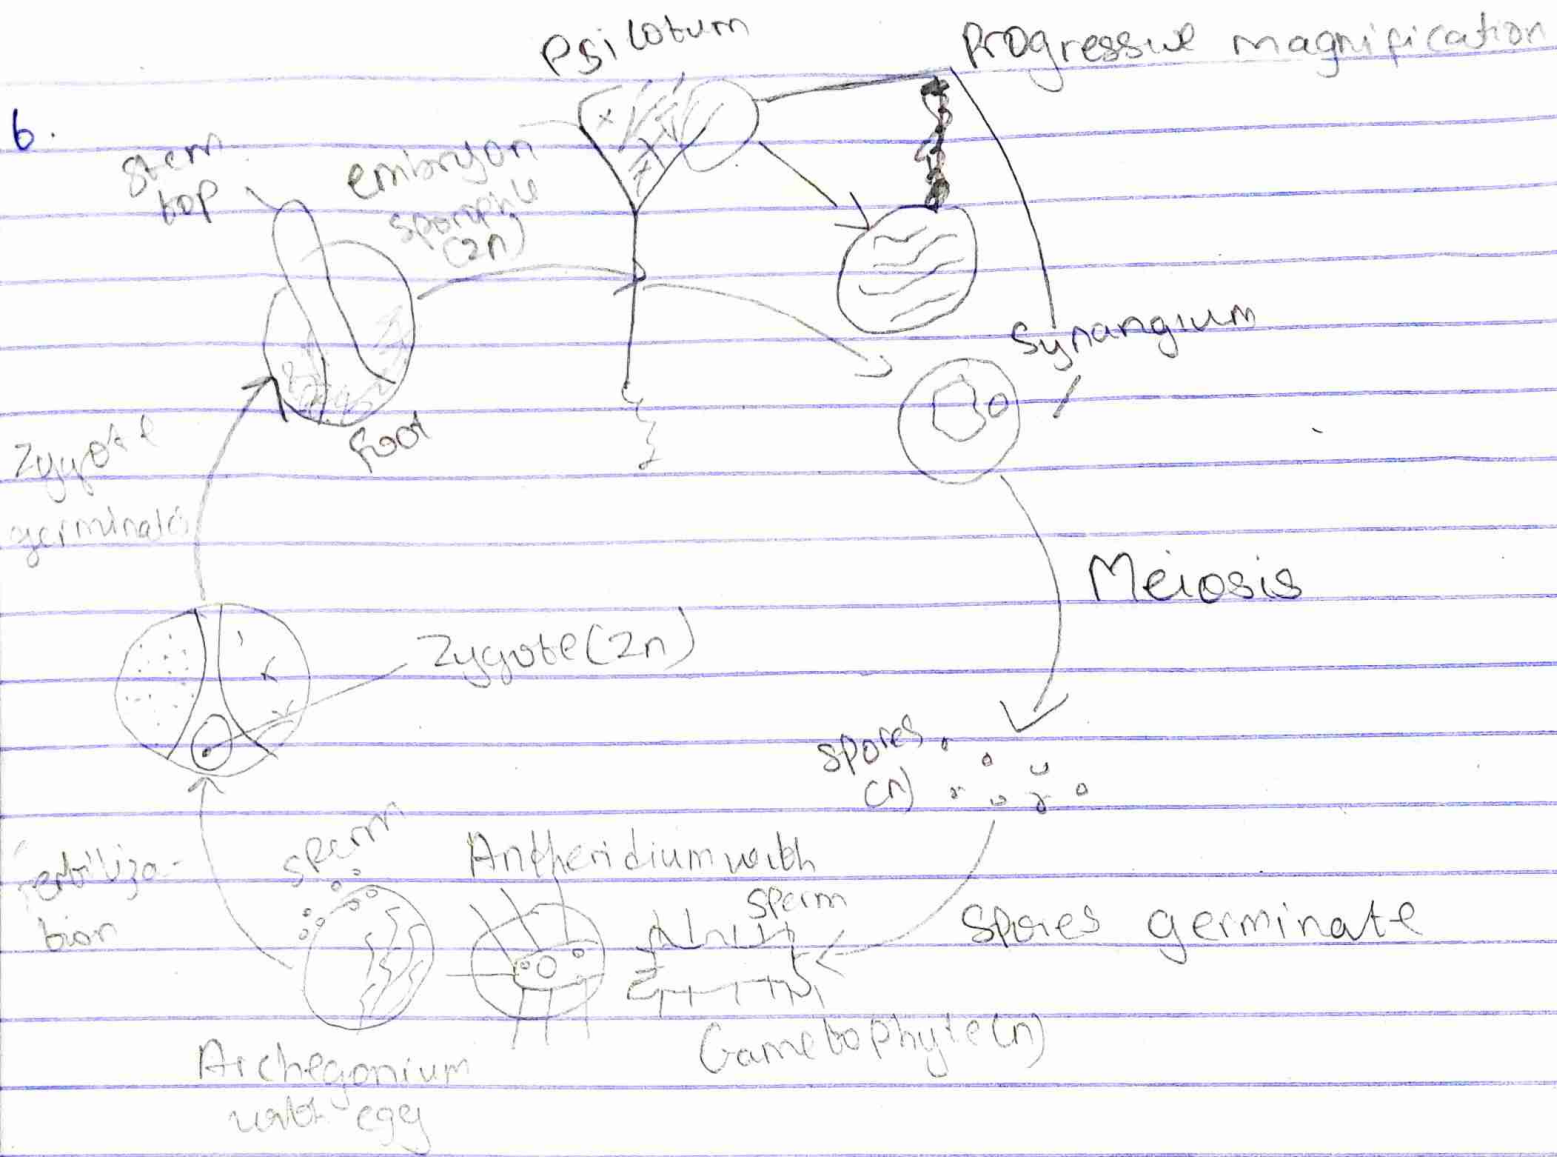 Psilotum
Progressive magnification
6.
stem
top
embryon
sporophile
(2n)
Synangium
foot
Zygote
germinates
Meiosis
Zygote(2n)
spores
(n)
sperm
Antheridium with
sperm
fertiliza-
tion
Spores germinate
Gametophyte(n)
Archegonium
with egg